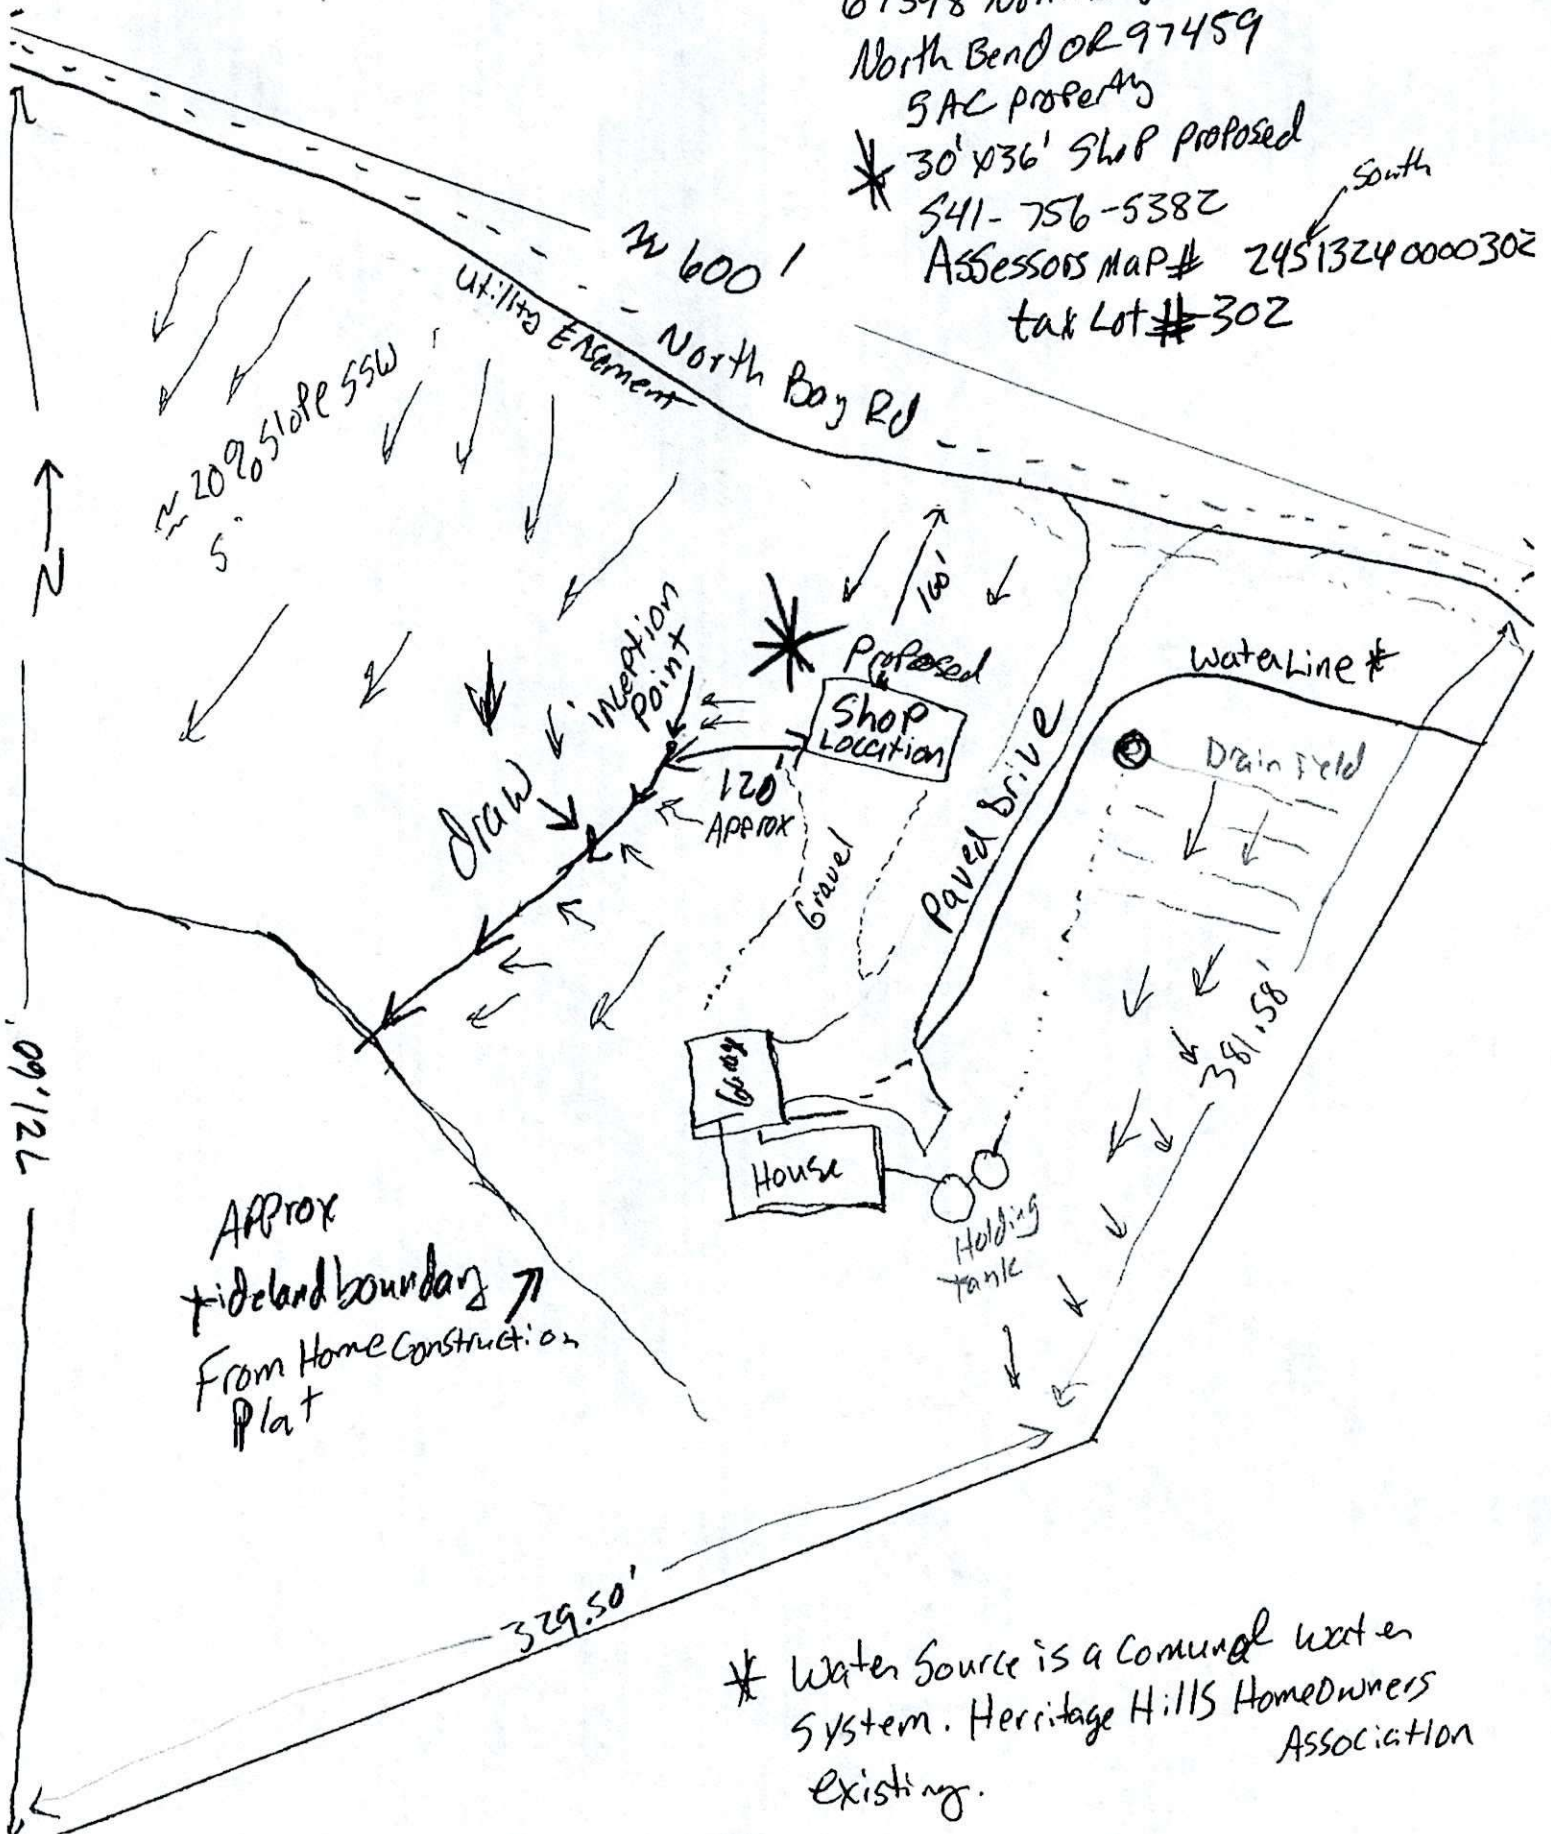 North Bend OR 97459
5 AC property
30' x 36' Shop Proposed
541-756-5382
south
Assessors Map # 24S13240000302
tax Lot # 302
≈ 600'
Utility Easement
North Bay Rd
≈ 20% Slope SSW
N
160'
inception
Point
Proposed
Shop
Location
WaterLine *
Drain Field
draw
120'
Approx
Gravel
Paved Drive
381.58'
721.60'
House
Holding
tank
Approx
tideland boundary
From Home Construction
Plat
329.50'
* Water Source is a Comunal water
System. Herritage Hills HomeOwners
Association
existing.